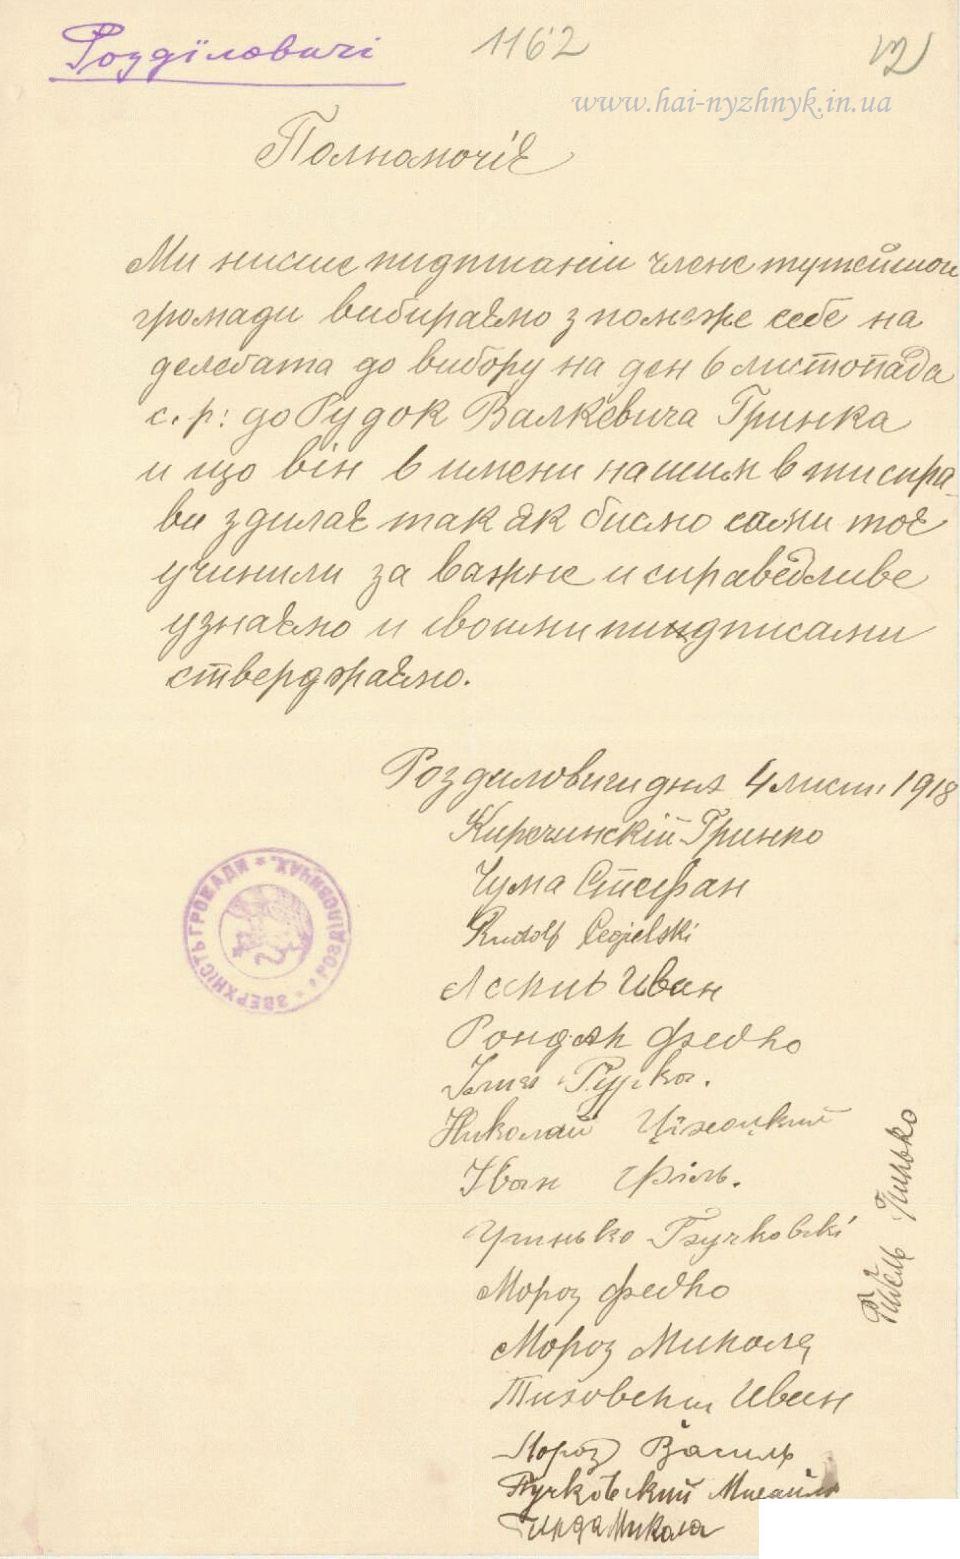 Розділовичі
1162
12
www.hai-nyzhnyk.in.ua
Полномочіє
Ми нисше пидписанiи члене тутейшои
громади вибираємо з помеже себе на
делєбата до вибору на ден 6 листопада
с. р: до Рудок Валкевича Гринка
и що він в имени нашим в тии спра-
ви здилає так як бисмо сами тоє
учинили за важне и справедливе
узнаємо и своими пидписами
стверджаємо.
Роздиловичи дня 4 лист. 1918
Гринко
Чума Стефан
Rudolf Cegielski
Иван
Рондяк Федко
Николай
Іван
Мороз Федко
Мороз Микола
Иван
Мороз Василь
Пучковский Михайло
Микола
Гилько
ЗВЕРХНІСТЬ ГРОМАДИ * РОЗДІЛОВИЧАХ. *